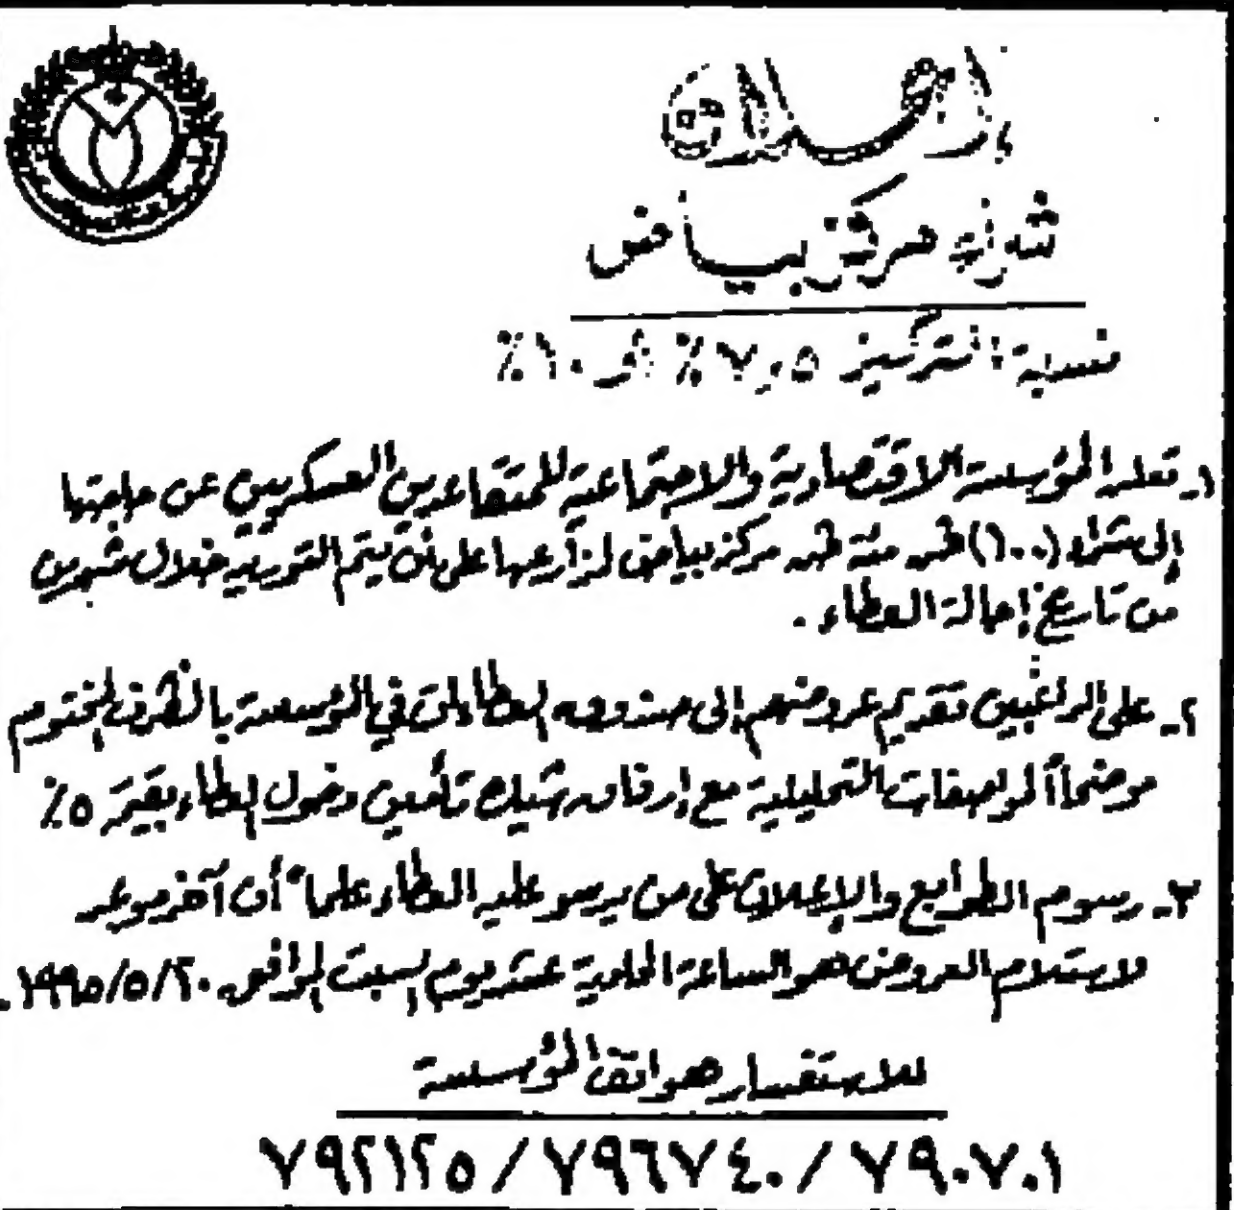 إعلان
شراء مركز بياض
نسبة التركيز ٧,٥٪ أو ١٠٪
١ـ تعلن المؤسسة الاقتصادية والاجتماعية للمتقاعدين العسكريين عن حاجتها
إلى شراء (١٠٠) طن مئة طن مركز بياض لزارعها على أن يتم التوريد خلال شهرين
من تاريخ إحالة العطاء .
٢ـ على الراغبين تقديم عروضهم إلى صندوق العطاءات في المؤسسة بالظرف المختوم
موضحاً المواصفات التحليلية مع إرفاق شيك تأمين دخول العطاء بقيمة ٥٪
٣ـ رسوم الطوابع والإعلان على من يرسو عليه العطاء علماً أن آخر موعد
لاستلام العروض هو الساعة الحادية عشر يوم السبت الموافق ١٩٩٥/٥/٢٠ .
للاستفسار هواتف المؤسسة
٧٩٠٧٠١ / ٧٩٦٧٤٠ / ٧٩٢١٢٥